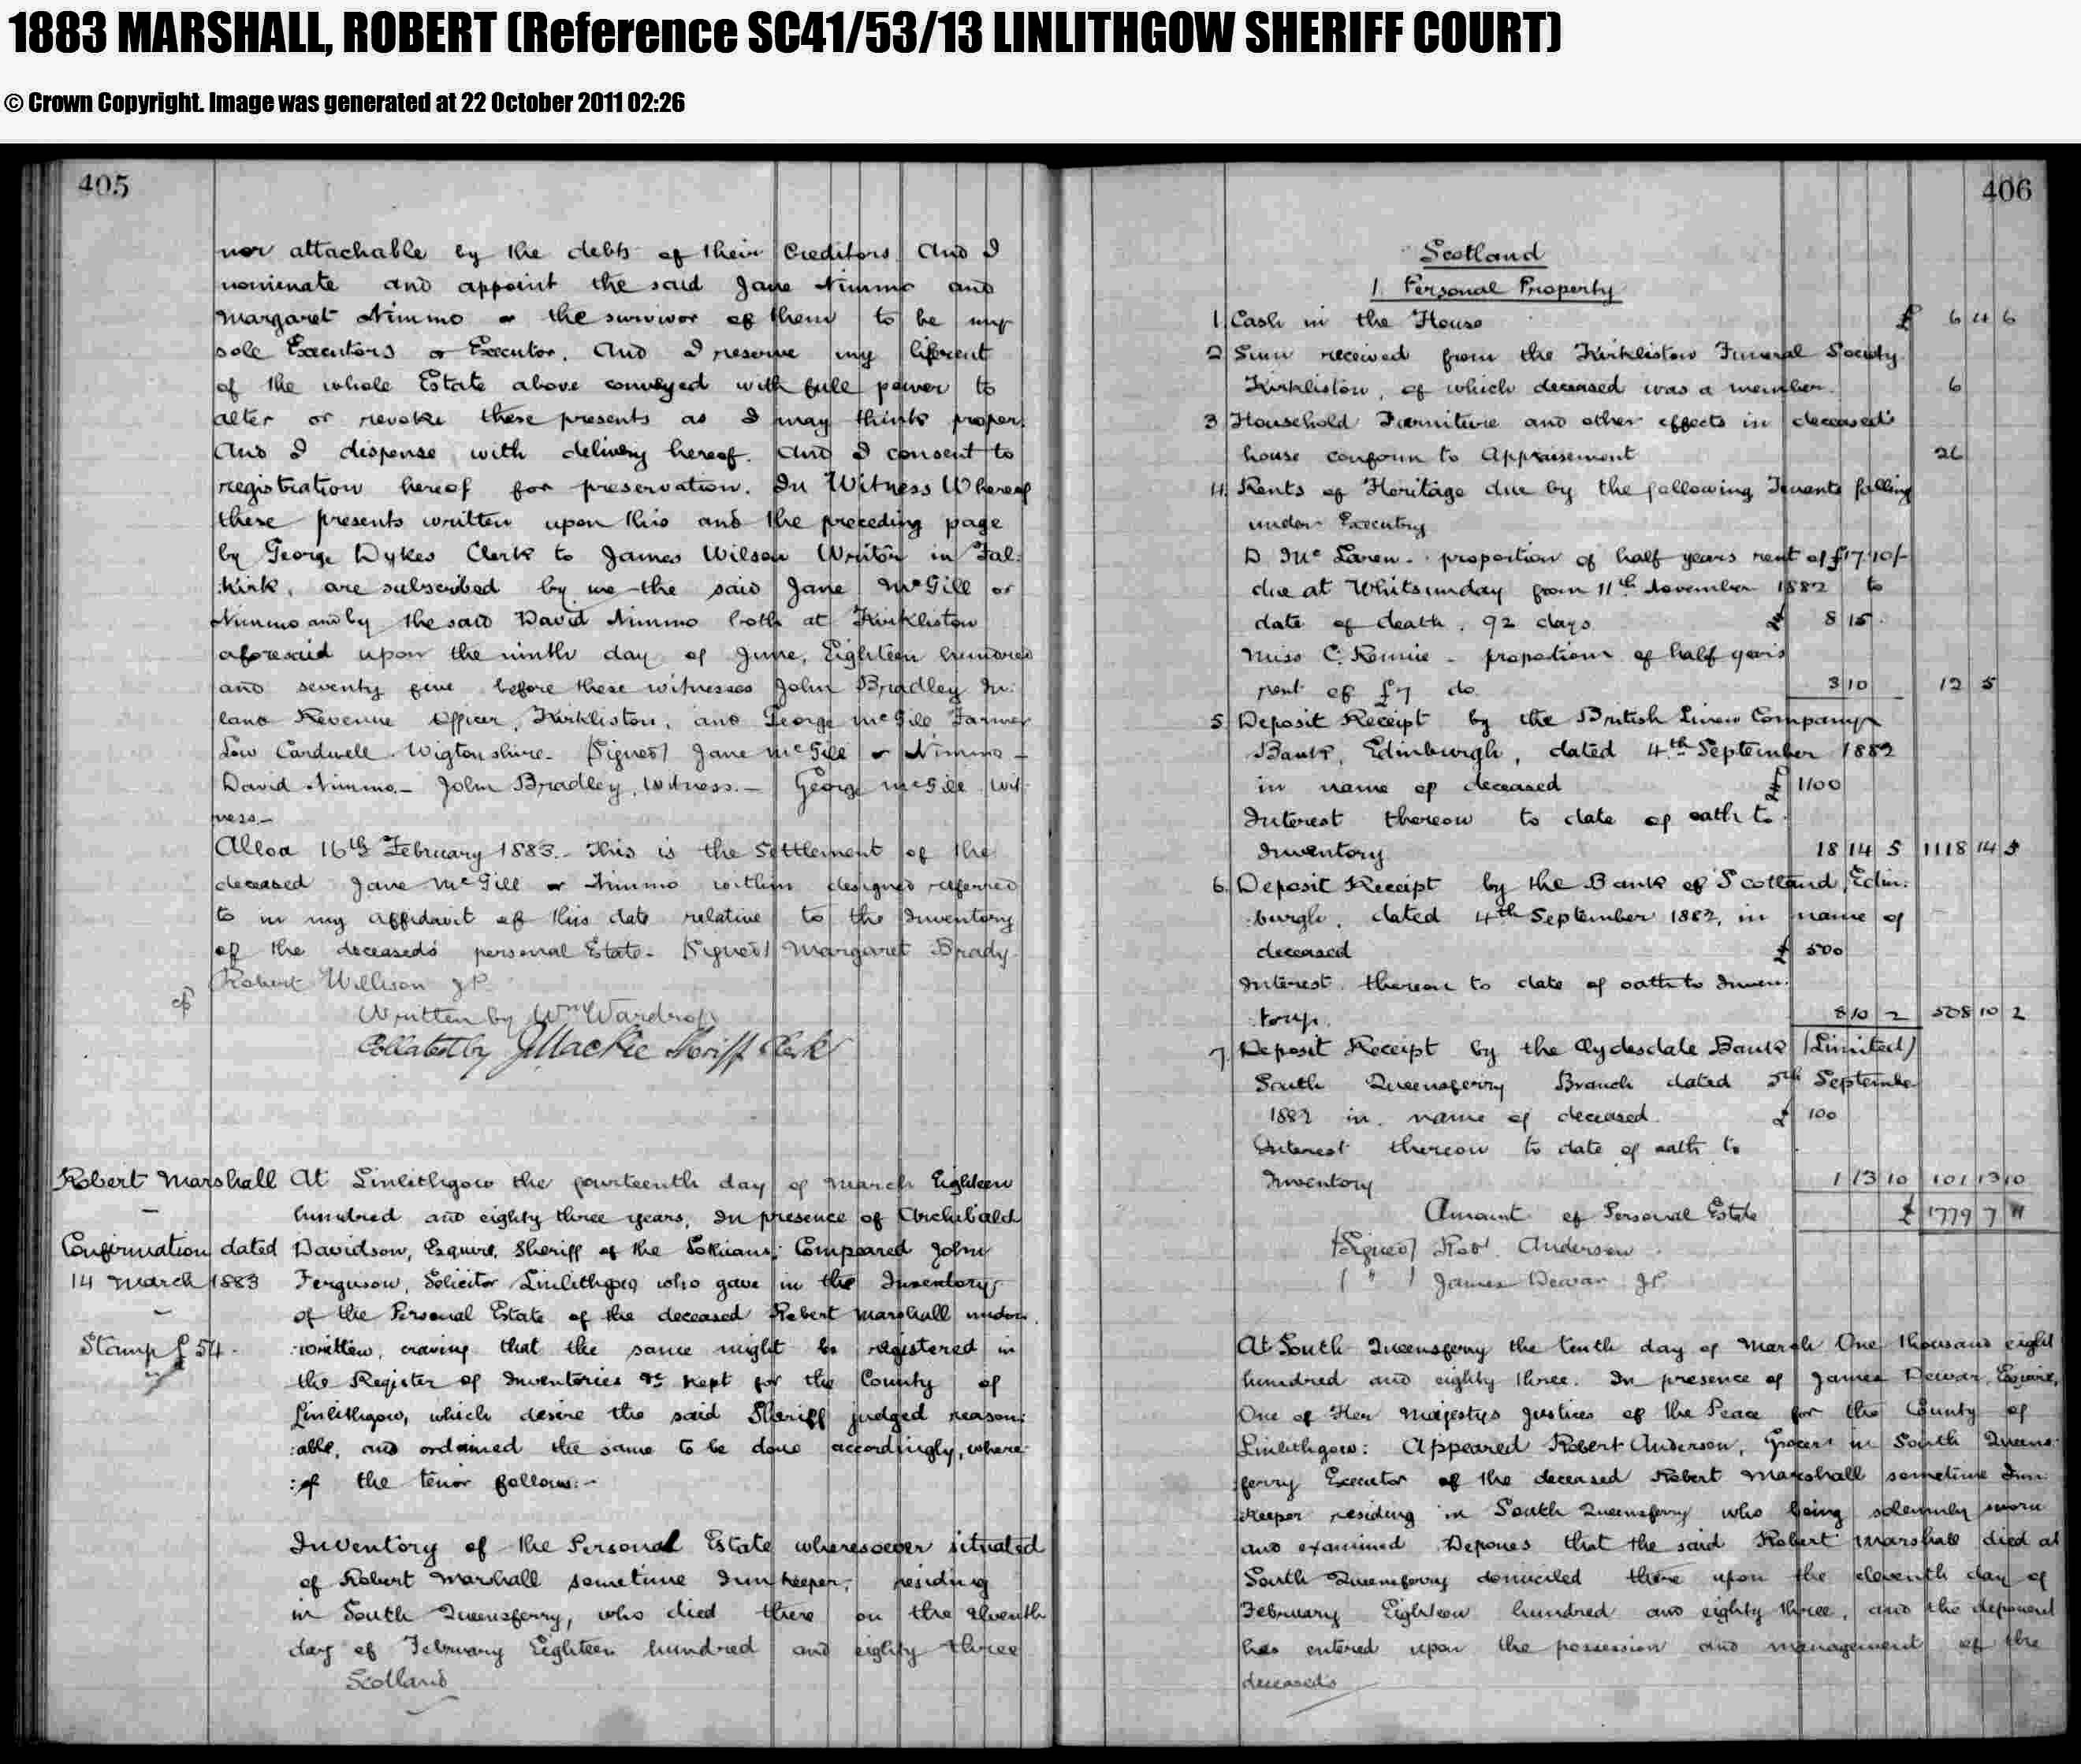 1883 MARSHALL, ROBERT (Reference SC41/53/13 LINLITHGOW SHERIFF COURT)
© Crown Copyright. Image was generated at 22 October 2011 02:26
405
nor attachable by the debts of their Creditors And I
nominate and appoint the said Jane Nimmo and
Margaret Nimmo or the survivor of them to be my
sole Executors or Executor. And I reserve my liferent
of the whole Estate above conveyed with full power to
alter or revoke these presents as I may think proper.
And I dispense with delivery hereof. And I consent to
registration hereof for preservation. In Witness Whereof
these presents written upon this and the preceding page
by George Dykes Clerk to James Wilson Writer in Fal:
:kirk, are subscribed by me the said Jane McGill or
Nimmo and by the said David Nimmo both at Kirkliston
aforesaid upon the ninth day of June, Eighteen hundred
and seventy five before these witnesses John Bradley In:
land Revenue Officer, Kirkliston, and George McGill Farmer
Low Cardwell Wigtonshire. (Signed) Jane McGill or Nimmo –
David Nimmo.– John Bradley, Witness.– George McGill Wit
ness.–
Alloa 16th February 1883.– This is the Settlement of the
deceased Jane McGill or Nimmo within designed referred
to in my affidavit of this date relative to the Inventory
of the deceased's personal Estate. (Signed) Margaret Brady
Robert Willison JP.
Written by Wm Wardrop
Collated by J Mackie Sheriff Clerk
Robert Marshall
Confirmation dated
14 March 1883
Stamp £54.
At Linlithgow the fourteenth day of March Eighteen
hundred and eighty three years, In presence of Archibald
Davidson, Esquire, Sheriff of the Lothians: Compeared John
Ferguson, Solicitor Linlithgow who gave in the Inventory
of the Personal Estate of the deceased Robert Marshall under
:written, craving that the same might be registered in
the Register of Inventories &c kept for the County of
Linlithgow, which desire the said Sheriff judged reason:
:able, and ordained the same to be done accordingly, where:
:of the tenor follows:–
Inventory of the Personal Estate wheresoever situated
of Robert Marshall sometime Innkeeper, residing
in South Queensferry, who died there on the eleventh
day of February Eighteen hundred and eighty three
Scotland
406
Scotland
1. Personal Property
1. Cash in the House £ 6 4 6
2 Sum received from the Kirkliston Funeral Society
Kirkliston, of which deceased was a member. 6
3 Household Furniture and other effects in deceased's
house conform to Appraisement 26
4. Rents of Heritage due by the following Tenants falling
under Executry
D McLaren – proportion of half years rent of £17.10/-
due at Whitsunday from 11th November 1882 to
date of death. 92 days £ 8 15.
Miss C. Rennie – proportion of half year's
rent of £7 do 3 10 12 5
5. Deposit Receipt by the British Linen Company
Bank, Edinburgh, dated 4th September 1882
in name of deceased £ 1100
Interest thereon to date of oath to
Inventory 18 14 5 1118 14 5
6. Deposit Receipt by the Bank of Scotland, Edin:
:burgh, dated 4th September 1882, in name of
deceased £ 500
Interest thereon to date of oath to Inven:
:tory. 8 10 2 508 10 2
7. Deposit Receipt by the Clydesdale Bank (Limited)
South Queensferry Branch dated 5th September
1882 in name of deceased £ 100
Interest thereon to date of oath to
Inventory 1 13 10 101 13 10
Amount of Personal Estate £ 1779 7 11
(Signed) Robt. Anderson
( " ) James Dewar JP
At South Queensferry the tenth day of March One thousand eight
hundred and eighty three. In presence of James Dewar, Esquire,
One of Her Majestys Justices of the Peace for the County of
Linlithgow: Appeared Robert Anderson, Grocer in South Queens:
:ferry Executor of the deceased Robert Marshall sometime Inn:
:keeper residing in South Queensferry who being solemnly sworn
and examined Depones that the said Robert Marshall died at
South Queensferry domiciled there upon the eleventh day of
February Eighteen hundred and eighty three, and the deponent
has entered upon the possession and management of the
deceased's